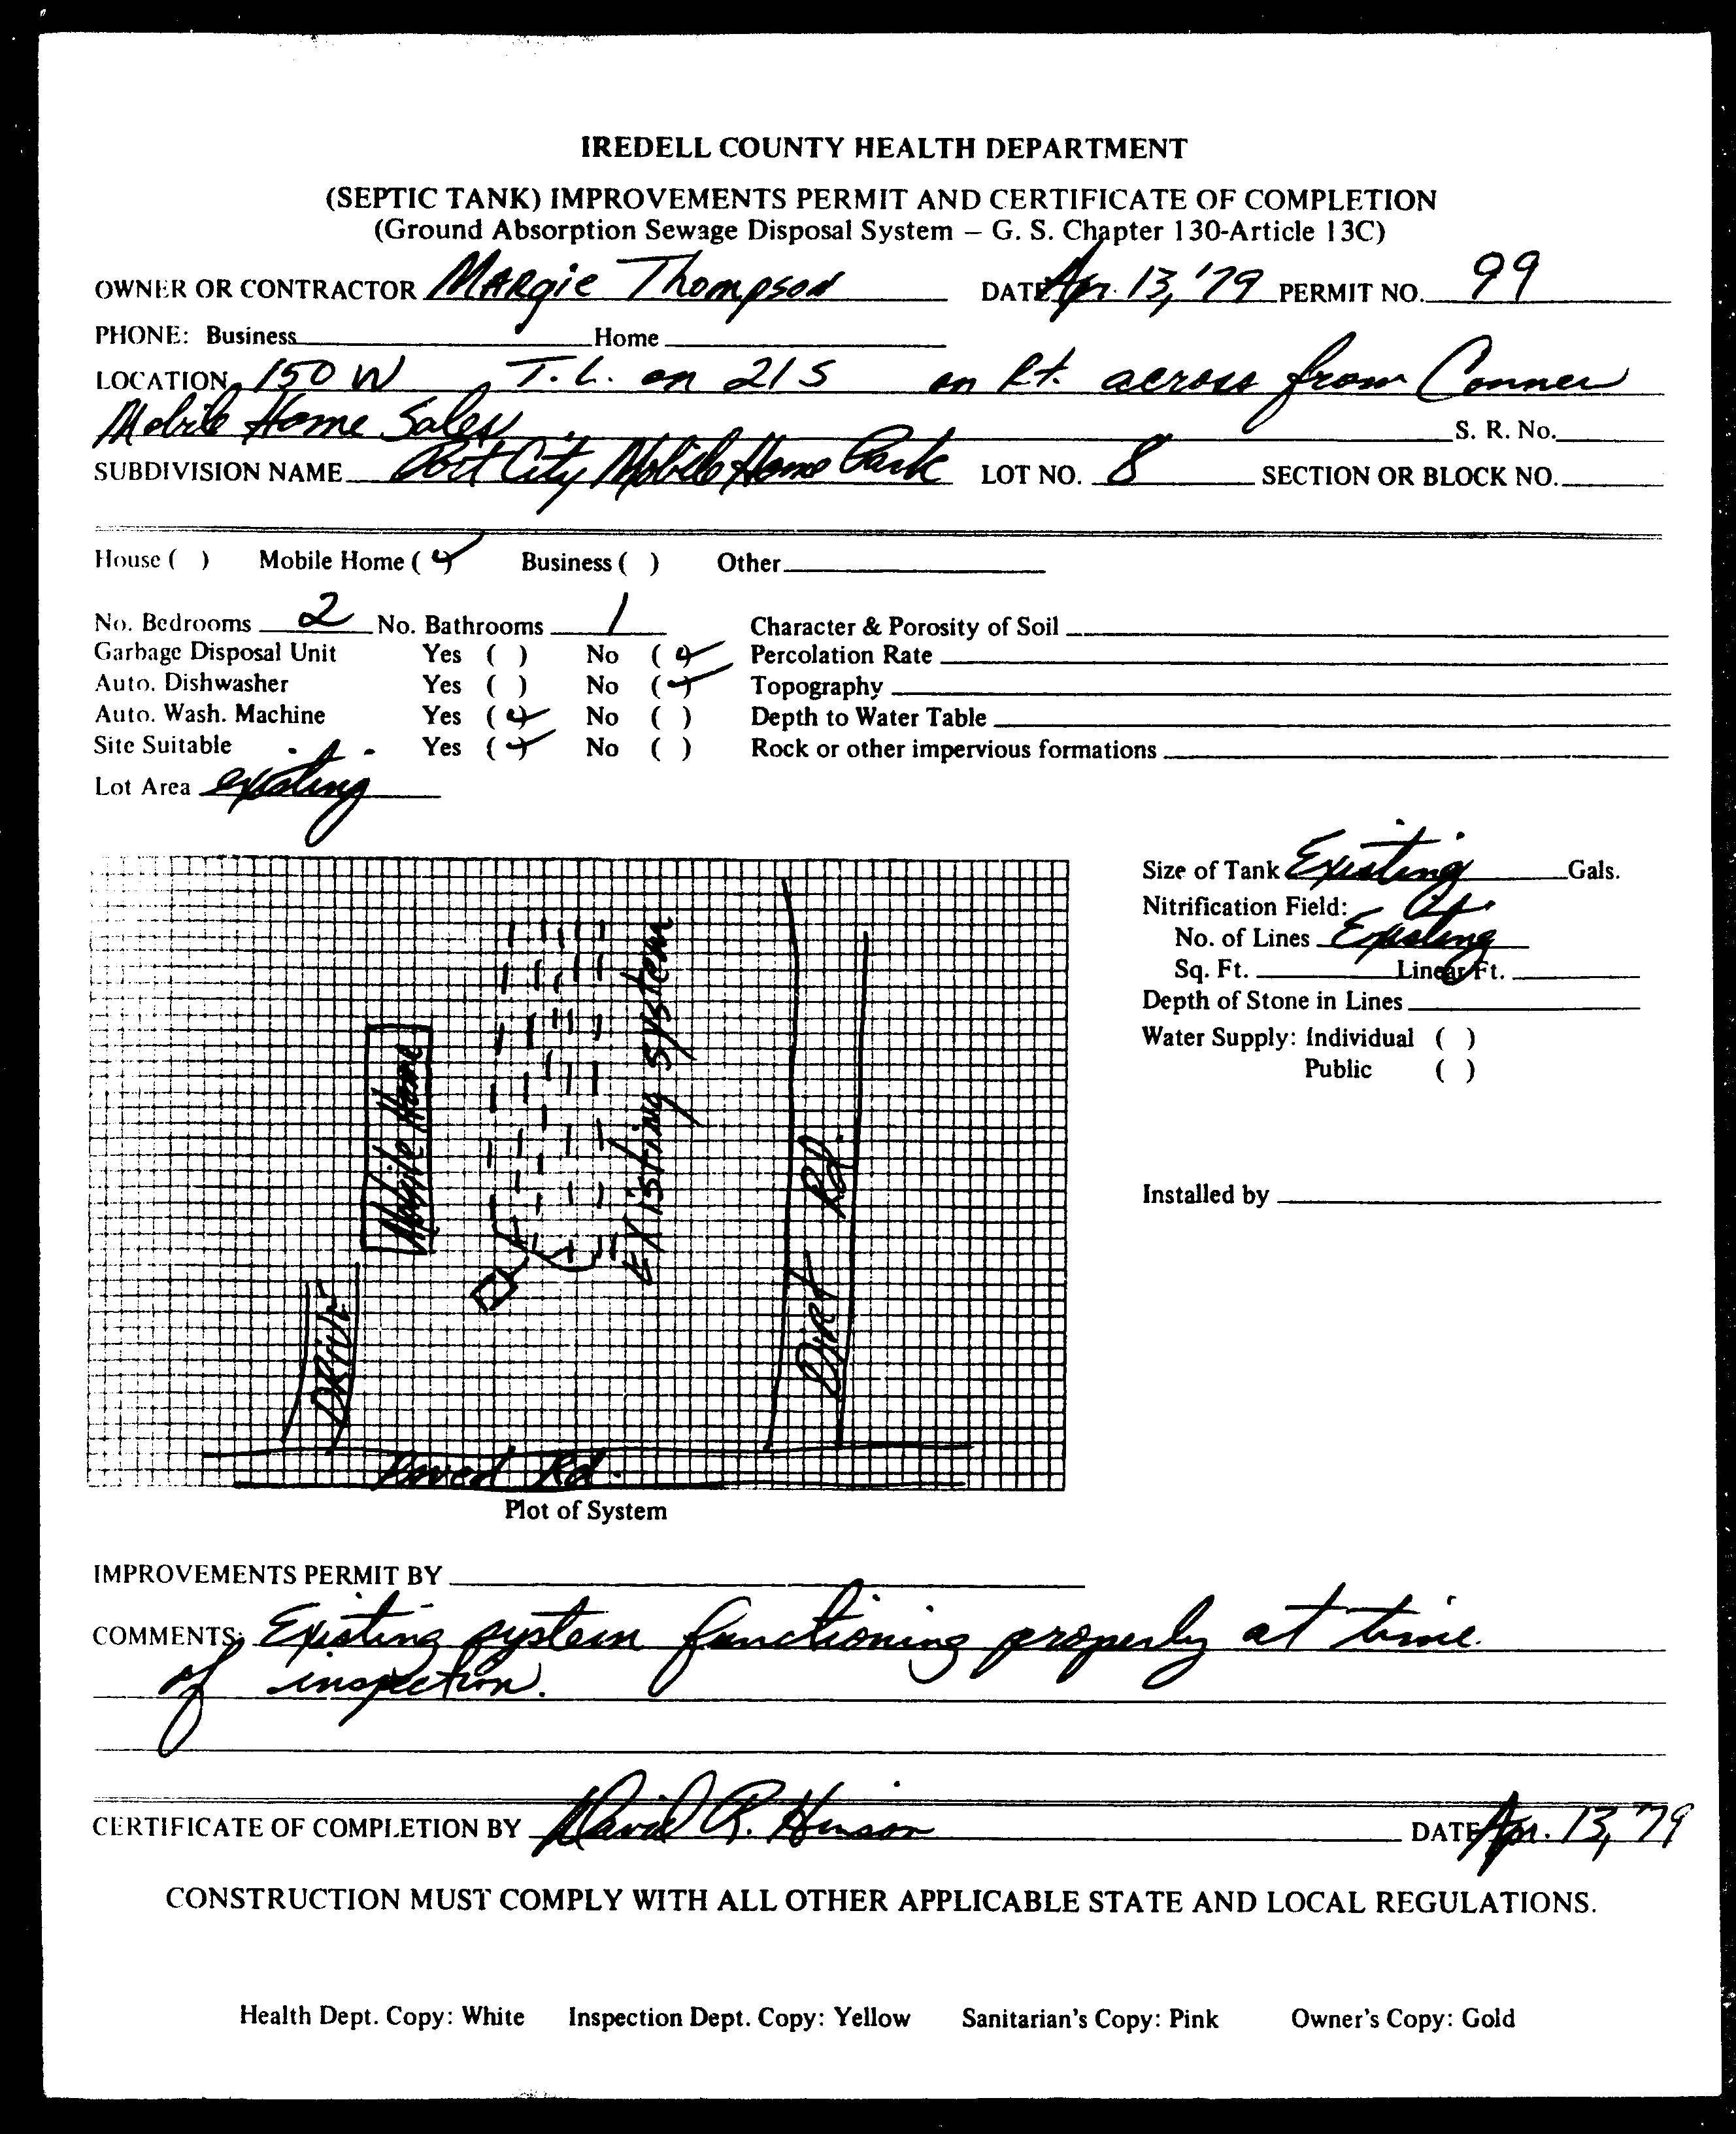 IREDELL COUNTY HEALTH DEPARTMENT
(SEPTIC TANK) IMPROVEMENTS PERMIT AND CERTIFICATE OF COMPLETION
(Ground Absorption Sewage Disposal System – G. S. Chapter 130-Article 13C)
OWNER OR CONTRACTOR Margie Thompson DATE Apr. 13, '79 PERMIT NO. 99
PHONE: Business Home
LOCATION 150 W T.L. on 21 S on Rt. across from Conner
Mobile Home Sales S. R. No.
SUBDIVISION NAME Port City Mobile Home Park LOT NO. 8 SECTION OR BLOCK NO.
House ( ) Mobile Home (✓) Business ( ) Other
No. Bedrooms 2 No. Bathrooms 1 Character & Porosity of Soil
Garbage Disposal Unit Yes ( ) No (✓) Percolation Rate
Auto. Dishwasher Yes ( ) No (✓) Topography
Auto. Wash. Machine Yes (✓) No ( ) Depth to Water Table
Site Suitable Yes (✓) No ( ) Rock or other impervious formations
Lot Area existing
Size of Tank Existing Gals.
Nitrification Field:
No. of Lines Existing
Sq. Ft. Linear Ft.
Depth of Stone in Lines
Water Supply: Individual ( )
Public ( )
Installed by
Mobile Home
Existing system
Dirt Rd.
DRIVE
Paved Rd.
Plot of System
IMPROVEMENTS PERMIT BY
COMMENTS: Existing system functioning properly at time
of inspection.
CERTIFICATE OF COMPLETION BY David R. Hinson DATE Apr. 13, '79
CONSTRUCTION MUST COMPLY WITH ALL OTHER APPLICABLE STATE AND LOCAL REGULATIONS.
Health Dept. Copy: White Inspection Dept. Copy: Yellow Sanitarian's Copy: Pink Owner's Copy: Gold